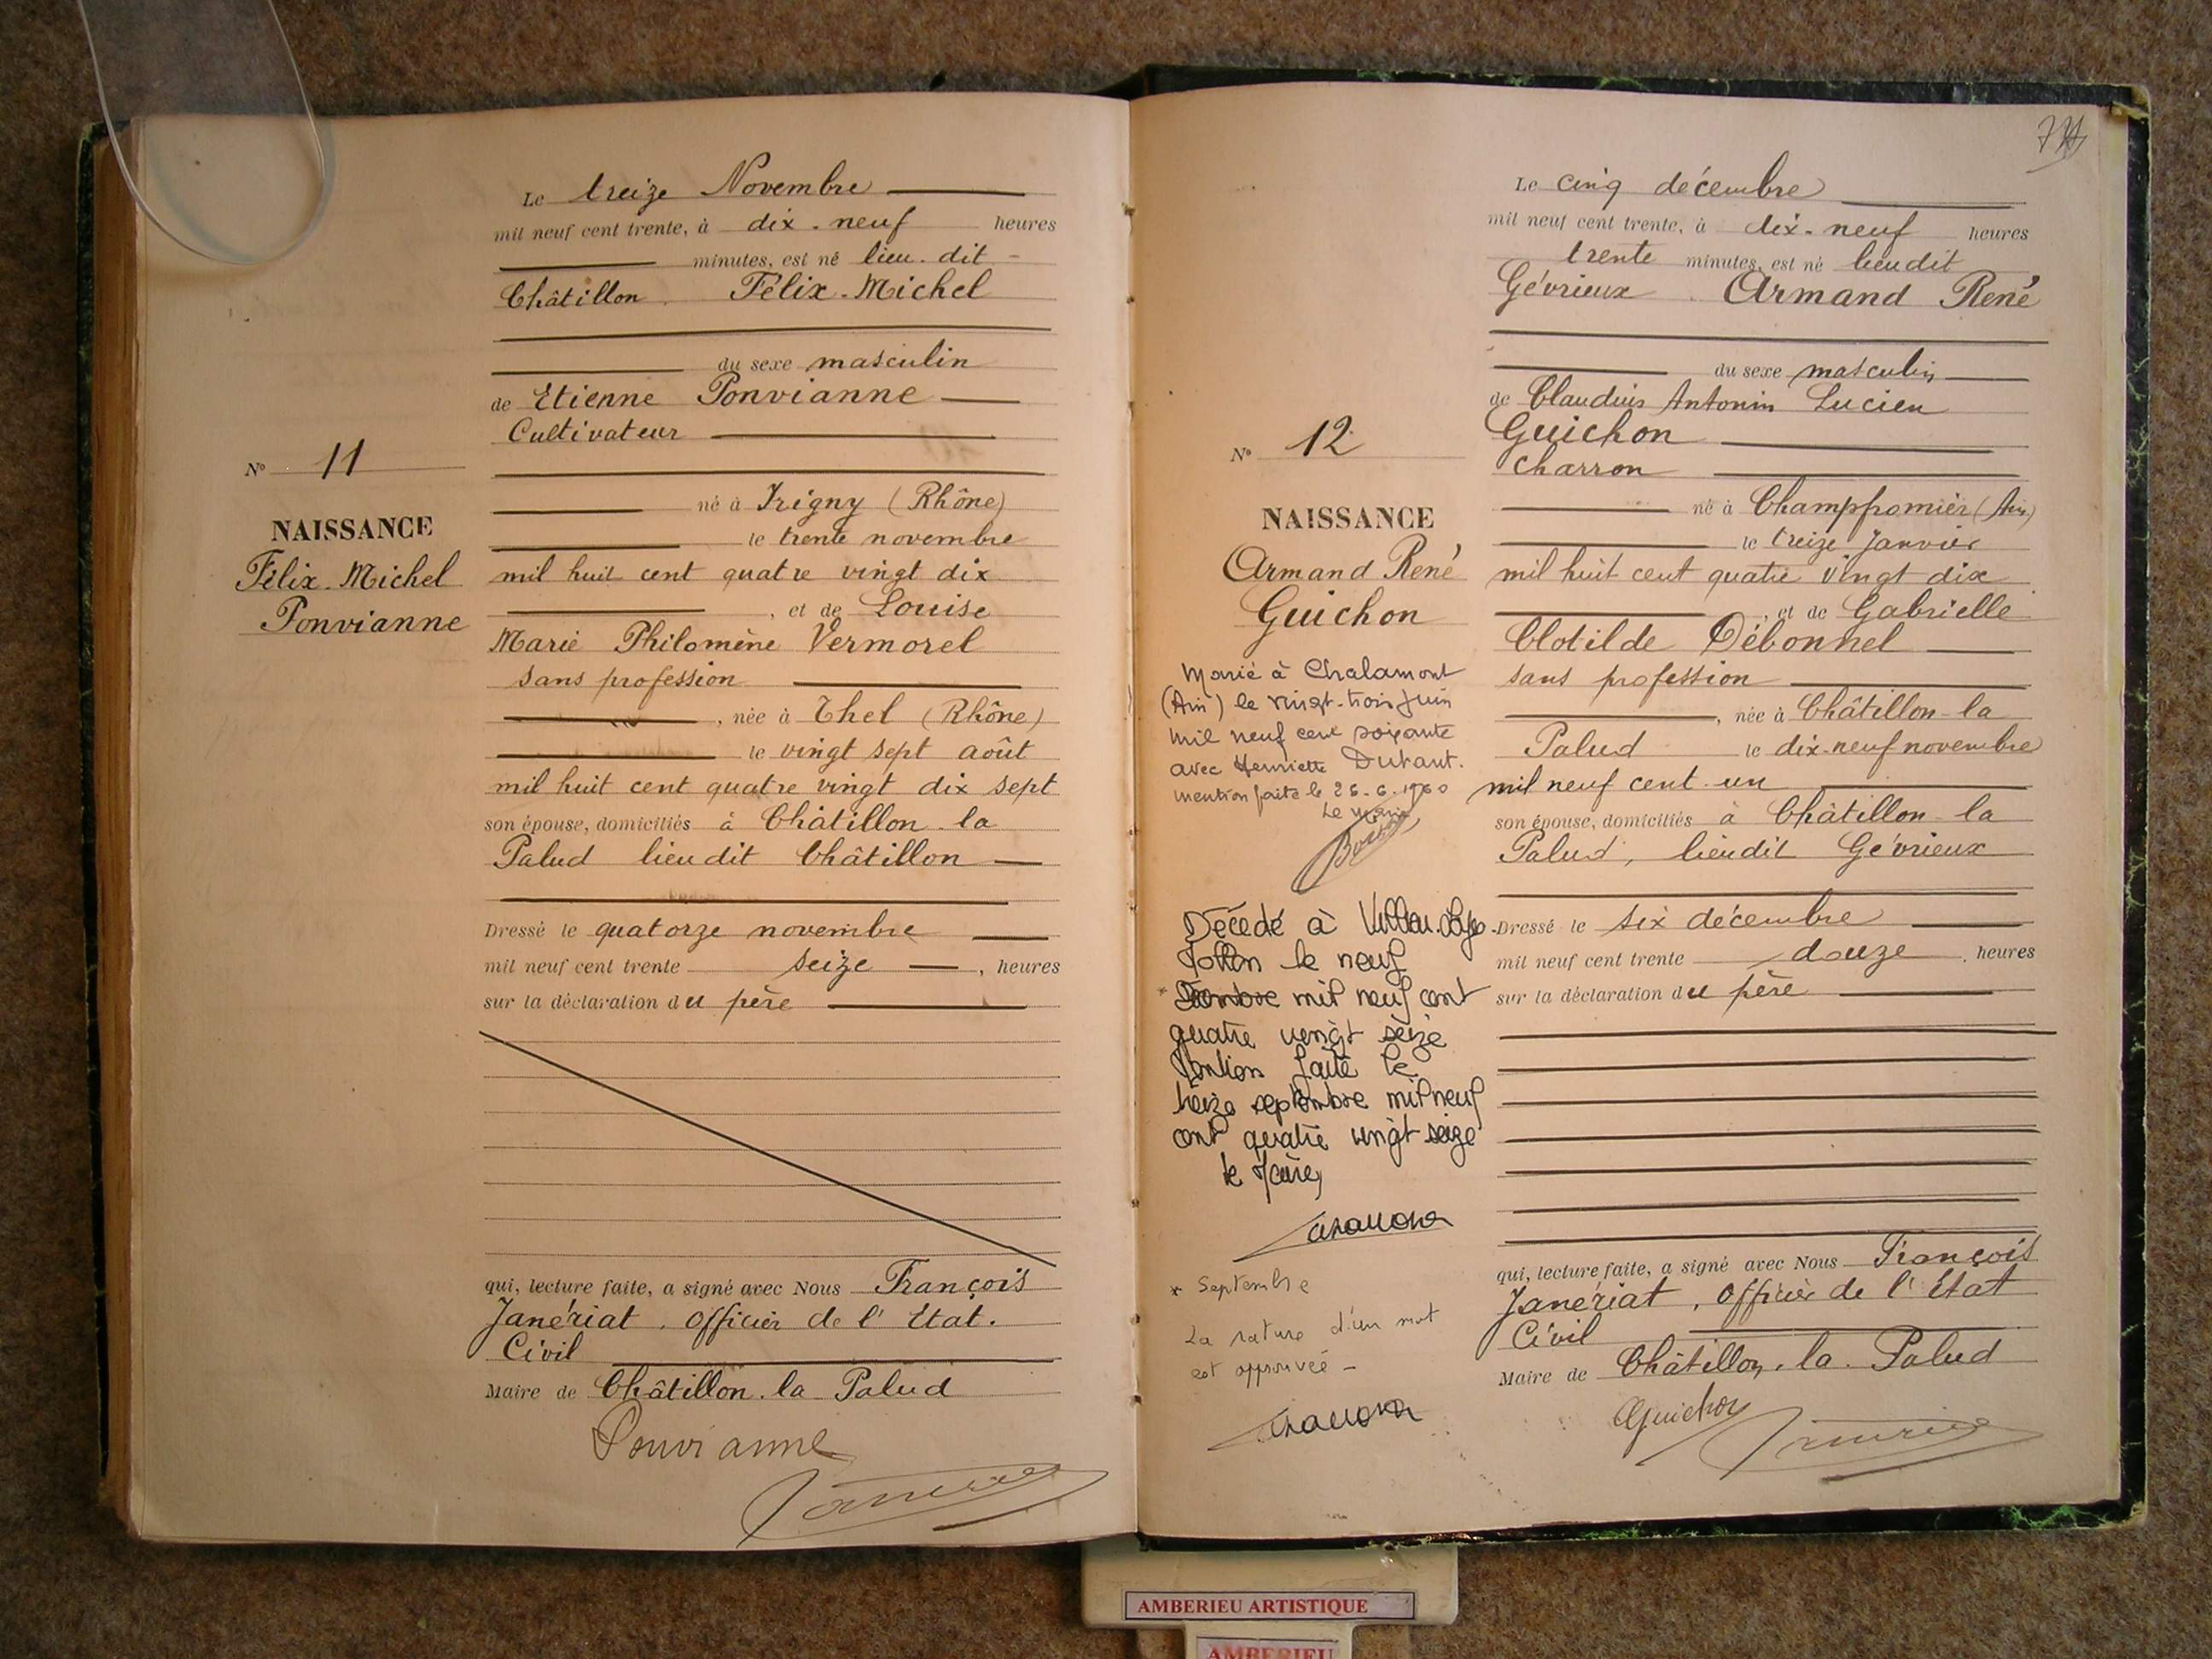 Le treize Novembre
mil neuf cent trente, à dix-neuf heures
minutes, est né lieu-dit
Châtillon Félix-Michel
du sexe masculin
de Etienne Ponvianne
Cultivateur
N° 11
né à Irigny (Rhône)
NAISSANCE
le trente novembre
Félix-Michel
mil huit cent quatre vingt dix
Ponvianne
, et de Louise
Marie Philomène Vermorel
sans profession
, née à Thel (Rhône)
le vingt sept août
mil huit cent quatre vingt dix sept
son épouse, domiciliés à Châtillon-la
Palud lieu dit Châtillon
Dressé le quatorze novembre
mil neuf cent trente seize , heures
sur la déclaration du père
qui, lecture faite, a signé avec Nous François
Janériat, Officier de l'Etat.
Civil
Maire de Châtillon-la-Palud
Ponvianne
Le cinq décembre
mil neuf cent trente, à dix-neuf heures
trente minutes, est né lieu dit
Gévrieux Armand René
du sexe masculin
de Claudius Antonin Lucien
Guichon
charron
N° 12
né à Champfromier (Ain)
NAISSANCE
le treize Janvier
Armand René
mil huit cent quatre vingt dix
Guichon
, et de Gabrielle
Clotilde Débonnel
sans profession
, née à Châtillon-la
Palud le dix-neuf novembre
mil neuf cent un
son épouse, domiciliés à Châtillon-la
Palud, lieu dit Gévrieux
Marié à Chalamont
(Ain) le vingt-trois juin
mil neuf cent soixante
avec Henriette
mention faite le 26-6-1960
Le Maire
Décédé à
le neuf
* mil neuf cent
quatre vingt seize
Mention faite le
treize septembre mil neuf
cent quatre vingt seize
le Maire,
* Septembre
La rature d'un mot
est approuvée -
Dressé le six décembre
mil neuf cent trente douze , heures
sur la déclaration du père
qui, lecture faite, a signé avec Nous François
Janériat, Officier de l'Etat
Civil
Maire de Châtillon-la-Palud
Guichon
AMBERIEU ARTISTIQUE
AMBERIEU